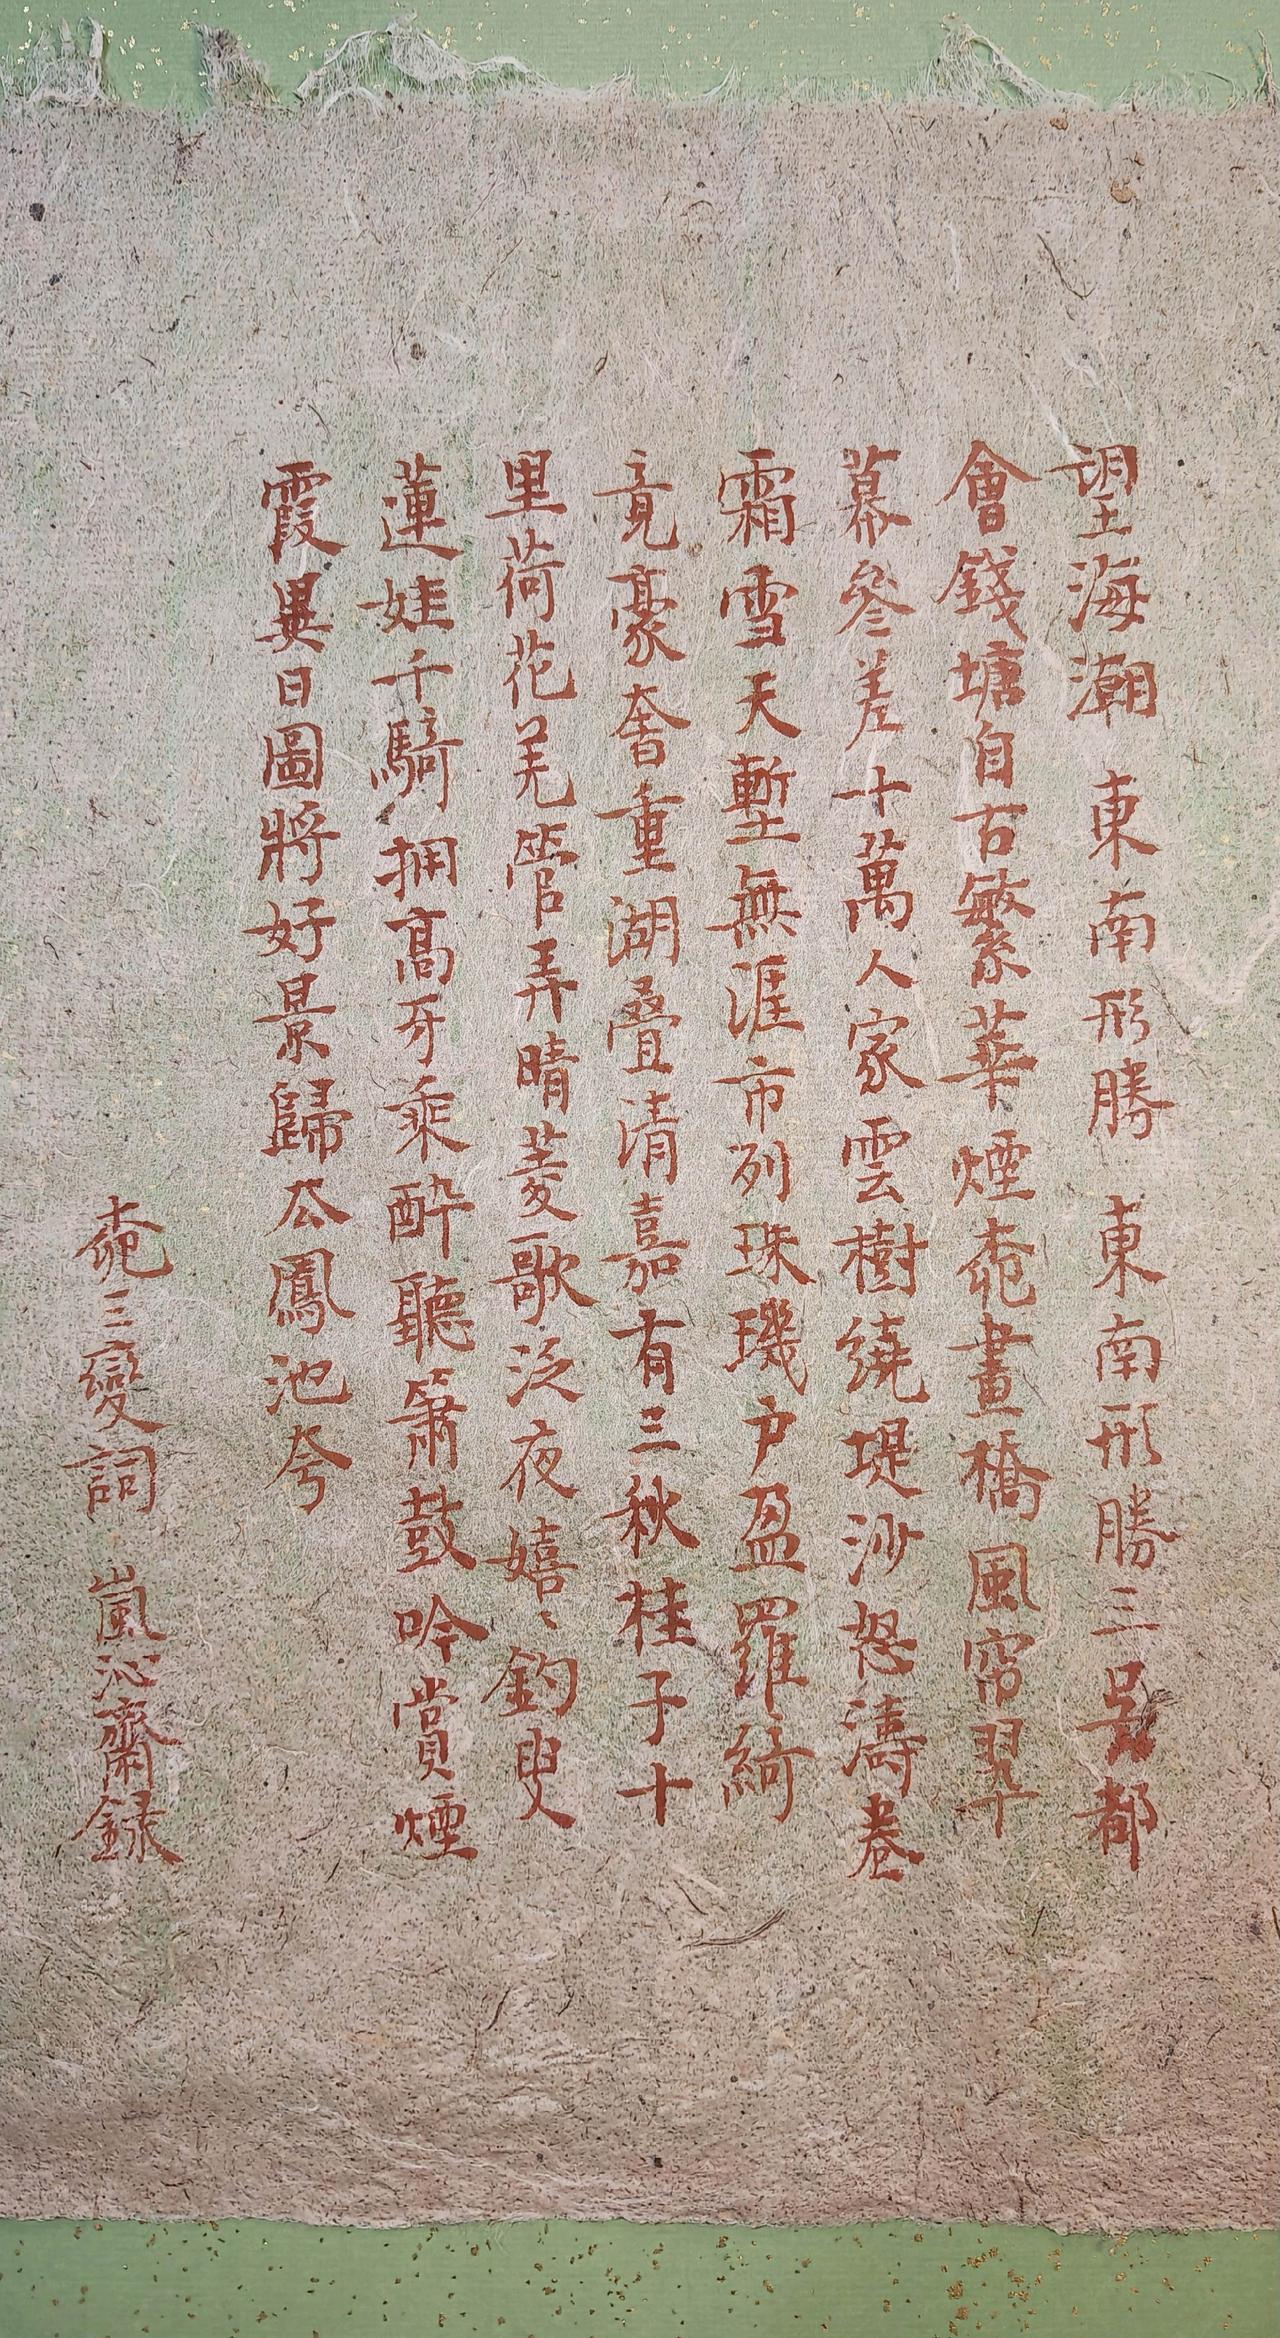 望海潮 東南形勝 東南形勝三吳都
會錢塘自古繁華煙桺畫橋風帘翠
幕參差十萬人家雲樹繞堤沙怒濤卷
霜雪天塹無涯市列珠璣户盈羅綺
竟豪奢重湖疊清嘉有三秋桂子十
里荷花羌管弄晴菱歌泛夜嬉〻釣叟
蓮娃千騎拥高牙乘醉聽簫鼓吟賞煙
霞異日圖將好景歸去鳳池夸
桺三變詞 嵐沁齋録